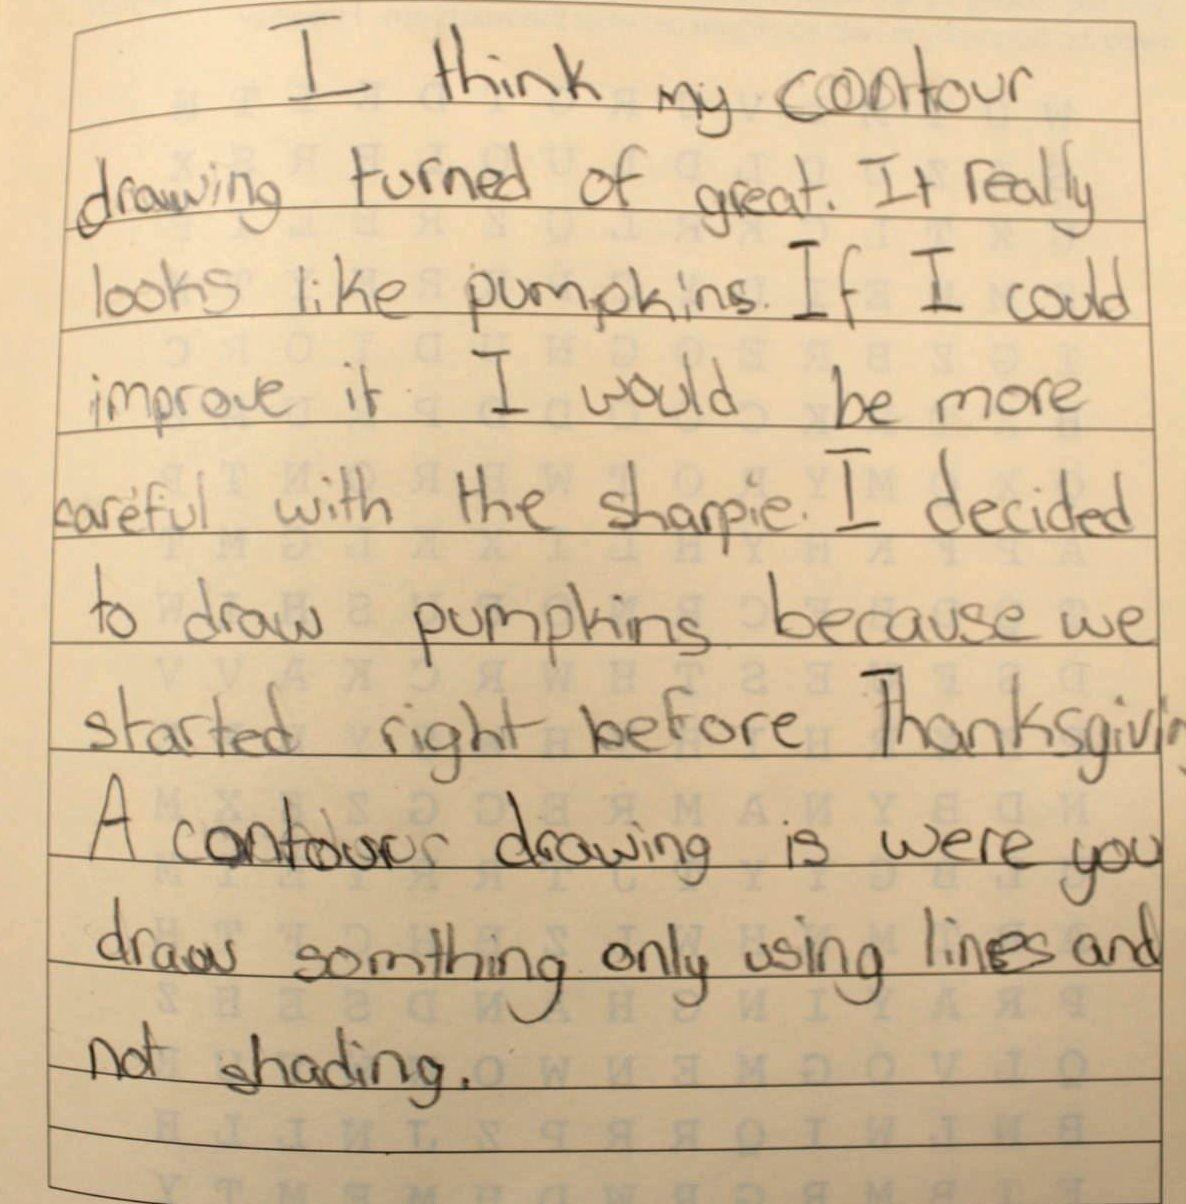 I think my contour
drawing turned of great. It really
looks like pumpkins. If I could
improve it I would be more
careful with the sharpie. I decided
to draw pumpkins because we
started right before Thanksgivin
A contour drawing is were you
draw somthing only using lines and
not shading.